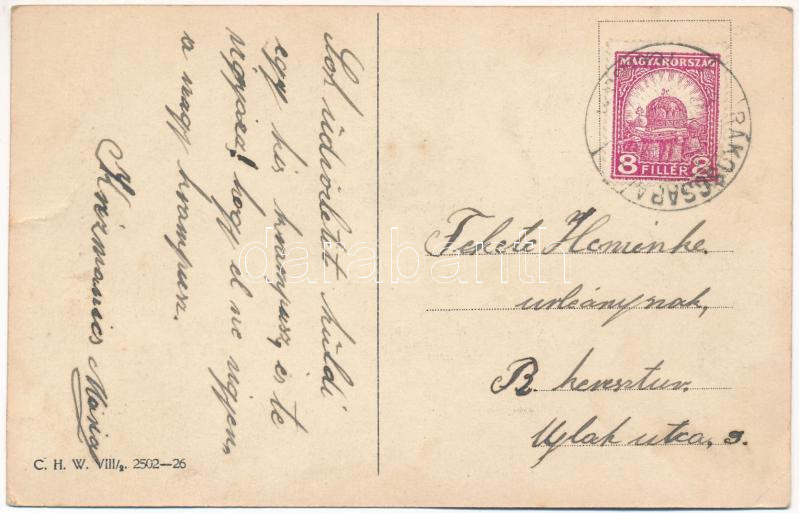 Sok üdvözletet küldi
egy kis krampusz, és te
vigyázz! hogy el ne vigyen,
a nagy krampusz.
Krizmanics Mariz
C. H. W. VIII/2. 2502—26
MAGYARORSZÁG
8 FILLÉR 8
RÁKOSCSABA
Fekete Heminke.
urleánynak,
R. keresztur.
Ujlak utca, 9.
darabanth